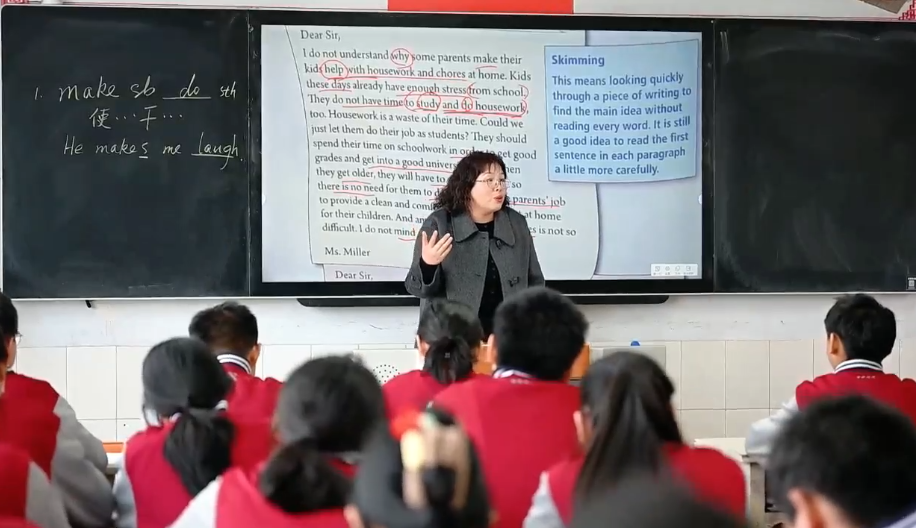 1. make sb do sth
使…干…
He makes me laugh.
Dear Sir,
I do not understand why some parents make their
kids help with housework and chores at home. Kids
these days already have enough stress from school.
They do not have time to study and do housework,
too. Housework is a waste of their time. Could we
just let them do their job as students? They should
spend their time on schoolwork in order to get good
grades and get into a good
they get older, they will have to so
there is no need for them to parents' job
to provide a clean and at home
for their children. And is not so
difficult. I do not mind
Ms. Miller
Dear Sir,
Skimming
This means looking quickly
through a piece of writing to
find the main idea without
reading every word. It is still
a good idea to read the first
sentence in each paragraph
a little more carefully.